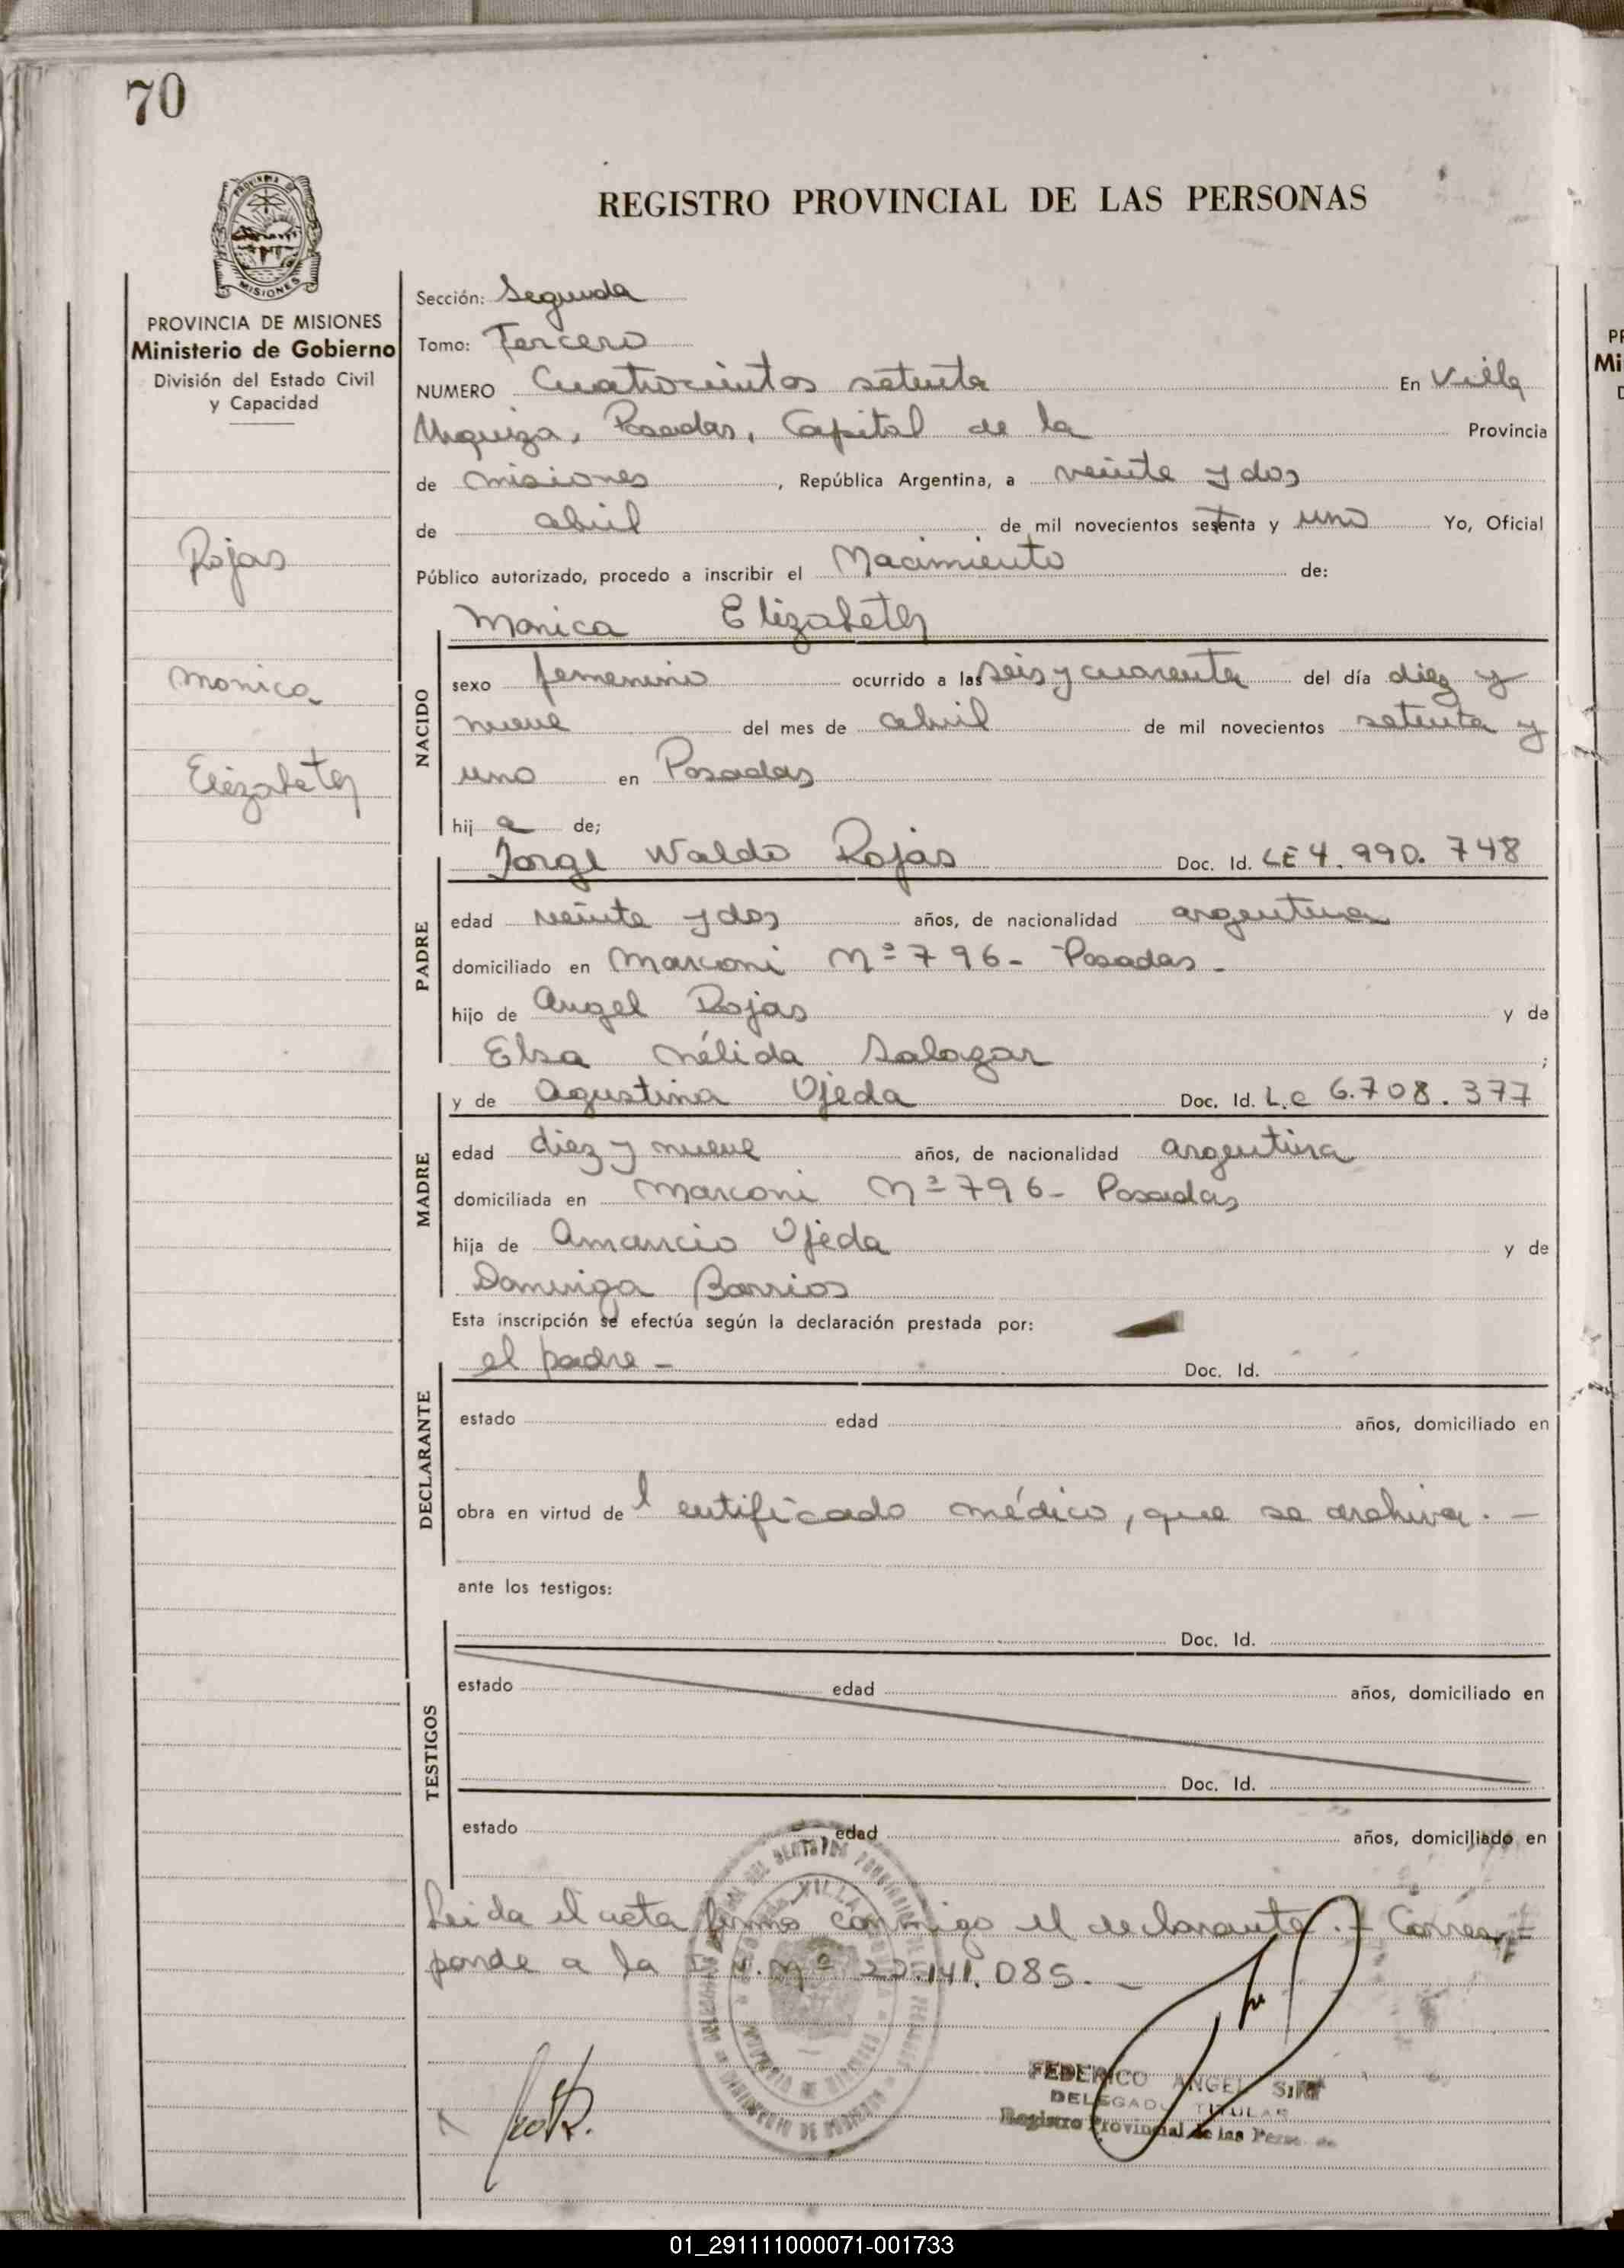 70
PROVINCIA DE
MISIONES
REGISTRO PROVINCIAL DE LAS PERSONAS
PROVINCIA DE MISIONES
Ministerio de Gobierno
División del Estado Civil
y Capacidad
Rojas
Monica
Elizabeth
Sección: Segunda
Tomo: Tercero
NUMERO Cuatrocientos setenta En Villa
Urquiza, Posadas, Capital de la Provincia
de Misiones, República Argentina, a veinte y dos
de abril de mil novecientos setenta y uno Yo, Oficial
Público autorizado, procedo a inscribir el Nacimiento de:
Monica Elizabeth
NACIDO
sexo femenino ocurrido a las seis y cuarenta del día diez y
nueve del mes de abril de mil novecientos setenta y
uno en Posadas
hij a de;
Jorge Waldo Rojas Doc. Id. LE 4.990.748
PADRE
edad veinte y dos años, de nacionalidad argentina
domiciliado en Marconi Nº 796 - Posadas -
hijo de Angel Rojas y de
Elsa Nélida Salazar ;
y de Agustina Ojeda Doc. Id. L.C 6.708.377
MADRE
edad diez y nueve años, de nacionalidad argentina
domiciliada en Marconi Nº 796 - Posadas
hija de Amancio Ojeda y de
Dominga Barrios
Esta inscripción se efectúa según la declaración prestada por:
el padre - Doc. Id.
DECLARANTE
estado edad años, domiciliado en
obra en virtud del certificado médico, que se archiva. -
ante los testigos:
Doc. Id.
TESTIGOS
estado edad años, domiciliado en
Doc. Id.
estado edad años, domiciliado en
Leida el acta firma conmigo el declarante. - Corres=
ponde a la Nº 22.141.085. -
FEDERICO ANGEL
DELEGADO TITULAR
Registro Provincial de las Pers. de
01_291111000071-001733